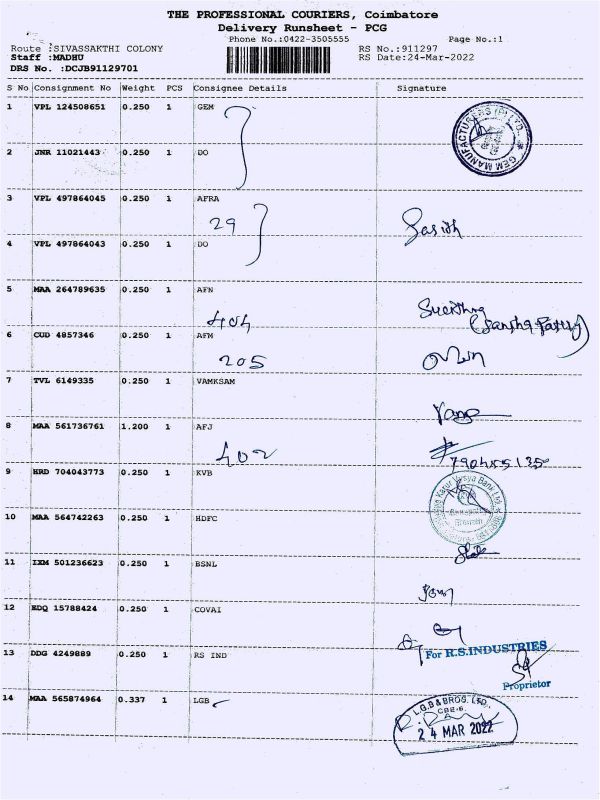 THE PROFESSIONAL COURIERS, Coimbatore
Delivery Runsheet - PCG
Phone No.:0422-3505555 Page No.:1
Route :SIVASSAKTHI COLONY RS No.:911297
Staff :MADHU RS Date:24-Mar-2022
DRS No. :DCJB91129701
S No Consignment No Weight PCS Consignee Details Signature
1 VPL 124508651 0.250 1 GEM
GEM MANUFACTURERS (P) LTD.
2 JNR 11021443 0.250 1 DO
3 VPL 497864045 0.250 1 AFRA
29
4 VPL 497864043 0.250 1 DO
5 MAA 264789635 0.250 1 AFN
404
6 CUD 4857346 0.250 1 AFM
205
7 TVL 6149335 0.250 1 VAMKSAM
8 MAA 561736761 1.200 1 AFJ
402
9 HRD 704043773 0.250 1 KVB
Karur Vysya Bank Ltd.
10 MAA 564742263 0.250 1 HDFC
11 IXM 501236623 0.250 1 BSNL
12 EDQ 15788424 0.250 1 COVAI
13 DDG 4249889 0.250 1 RS IND
For R.S.INDUSTRIES
Proprietor
14 MAA 565874964 0.337 1 LGB
L.G.B & BROS. LTD.,
CBE-6.
24 MAR 2022